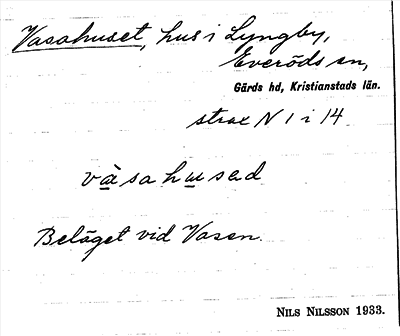 Vasahuset, hus i Lyngby,
Everöds sn,
Gärds hd, Kristianstads län.
strax N 1 i 14
vàsahused
Beläget vid Vasen.
NILS NILSSON 1933.